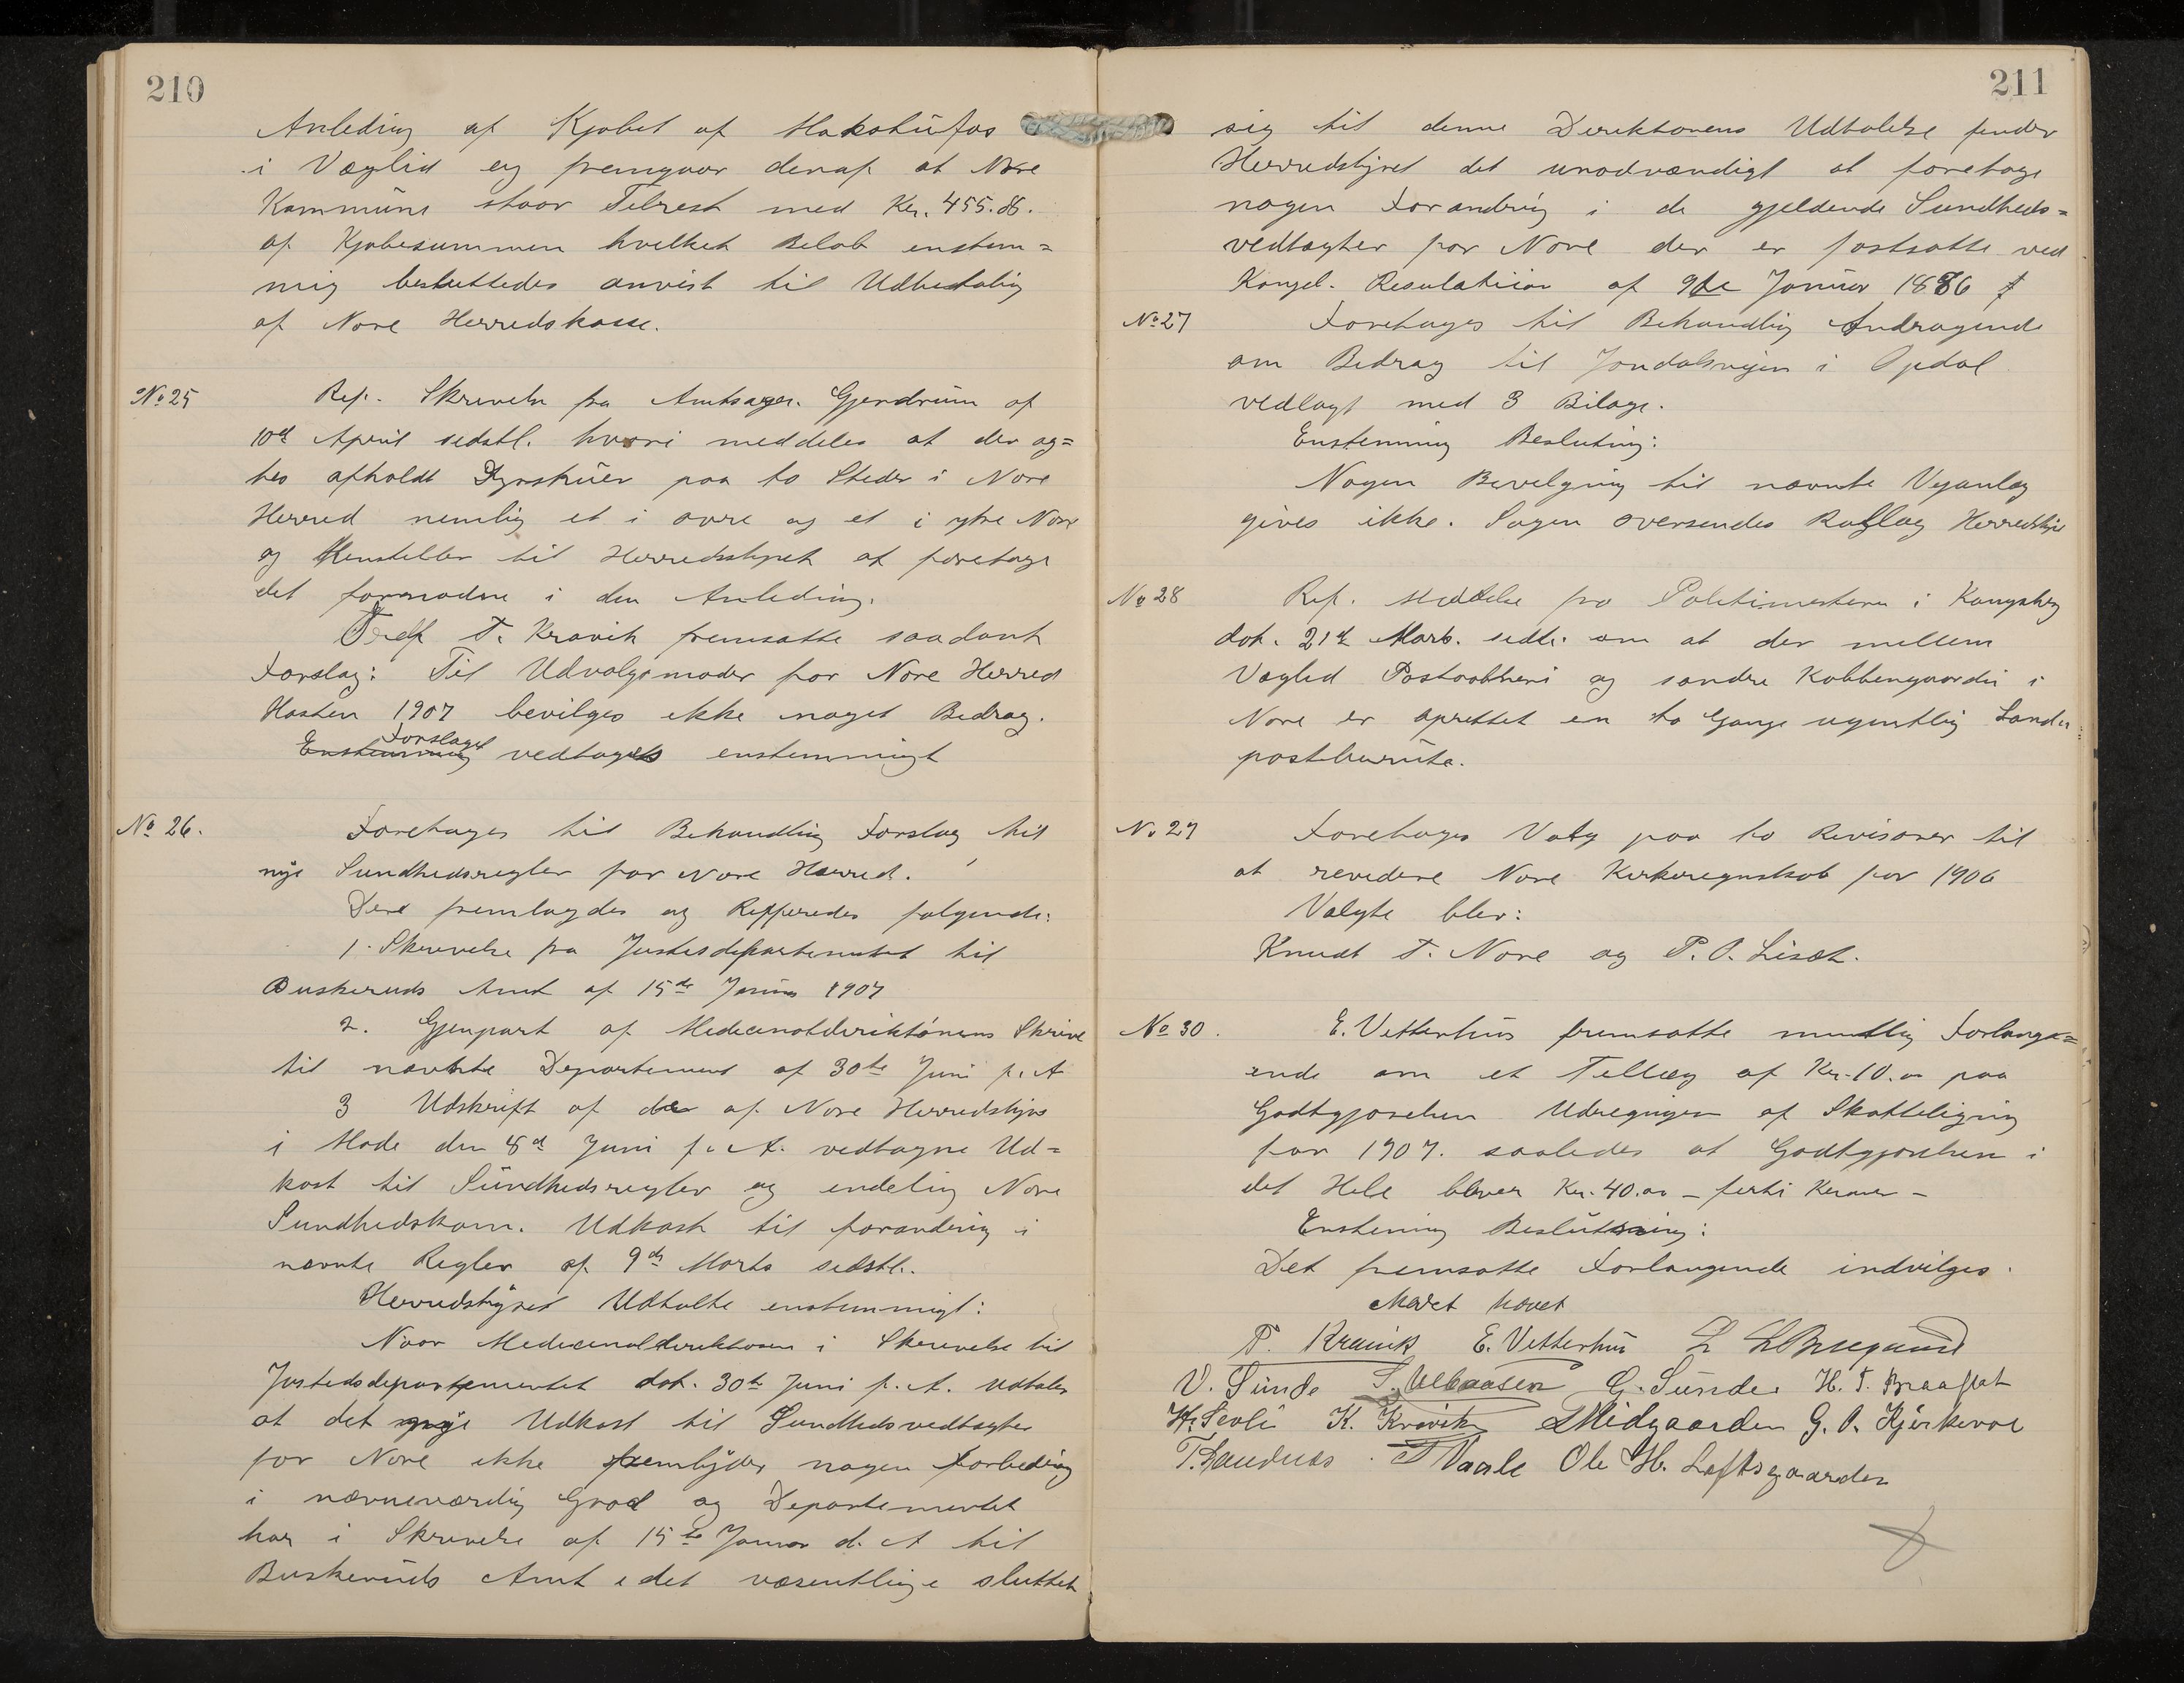 210
Anleding af Kjøbet af Makalaüsfos
i Væglid og fremgaar deraf at Nore
Kommüne staar Tilrest med Kr. 455.86.
af Kjøbesummen hvilket Beløb enstem=
mig besluttedes anvist til Udbetaling
af Nore Herredskasse.
No 25
Ref. Skrivelse fra Amtsagr. Gjendrüm af
10de April sidstl. hvori meddeles at der ag=
tes afholdt Dyrskuer paa to Steder i Nore
Herred nemlig et i øvre og et i ytre Nore
og Henstiller til Herredsstyret at foretage
det fornødne i den Anleding.
Ordf T. Kravik fremsatte saadant
Forslag: Til Udvalgsmøder for Nore Herred
Høsten 1907 bevilges ikke noget Bidrag.
Enstemmig Forslaget vedtoges enstemmigt
No 26.
Foretages til Behandling Forslag til
nye Sundhedsregler for Nore Herred.
Der fremlagdes og Reffferedes følgende:
1. Skrivelse fra Justisdepartementet til
Buskeruds Amt af 15de Janüar 1907
2. Gjenpart af Medicinaldirektørens Skrive
til nævnte Departement af 30te Juni f. A
3 Udskrift af de af Nore Herredstyre
i Møde den 8de Juni f. A. vedtagne Ud=
kast til Sündhedsregler og endelig Nore
Sundhedskom. Udkast til forandring i
nævnte Regler af 9de Marts sidstl.
Herredstyret Udtalte enstemmigt:
Naar Medicinaldirektøren i Skrivelse til
Justisdepartementet dat. 30te Juni f. A. udtaler
at det nye Udkast til Sundhedsvedtægter
for Nore ikke frembyder nogen forbedring
i nævneværdig Grad og Departementet
har i Skrivelse af 15de Januar d. A til
Buskerüds Amt i det væsentlige sluttet
211
sig til denne Direktørens Udtalelse finder
Herredstyret det unødvændigt at foretage
nogen Forandring i de gjeldende Sundheds=
vedtægter for Nore der er fastsatte ved
Kongel. Resolution af 9de Janüar 1886
No 27
Foretages til Behandling Andragende
om Bidrag til Jondalsveien i Opdal
vedlagt med 3 Bilage.
Enstemmig Beslutning:
Nogen Bevilgning til nævnte Veyanlæg
gives ikke. Sagen oversendes Rollag Herredstyre
No 28
Ref. Meddelse fra Politimesteren i Kongsberg
dat. 21de Marts. sidtl. om at der mellem
Væglid Postaabneri og søndre Kobbergaarden i
Nore er oprettet en to Gange ugentlig Lande=
postburute.
No 29
Foretages Valg paa to Revisorer til
at revedere Nore Kirkeregnskab for 1906
Valgte blev:
Knudt T. Nore og P. O. Liset.
No 30.
E. Vetterhüs fremsatte mundtlig Forlange=
ende om et Tillæg af Kr. 10.oo paa
Godtgjørelsen Udregnigen af Skatteligning
for 1907. saaledes at Godtgjørelsen i
det Hele bliver Kr. 40.oo – firti Kroner –
Enstemig Beslütning:
Det fremsatte Forlangende indvilges.
Mødet hævet
T. Kravik E. Vetterhüs
O. Sünde G. Sünde H. T. Braaflat
H. Sevli K. Kravik Midgaarden G. O. Kjirkevol
T. Sandnes T Vaale Ole H. Loftsgaarden